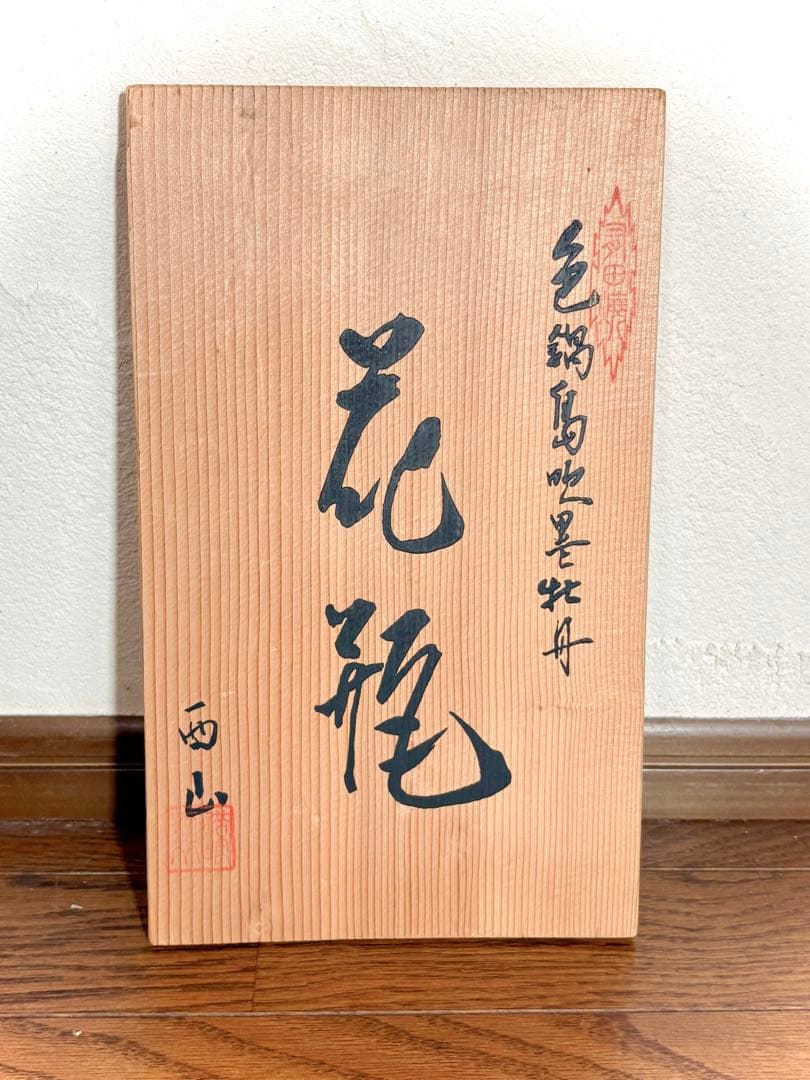 色鍋島吹墨牡丹
花瓶
西山